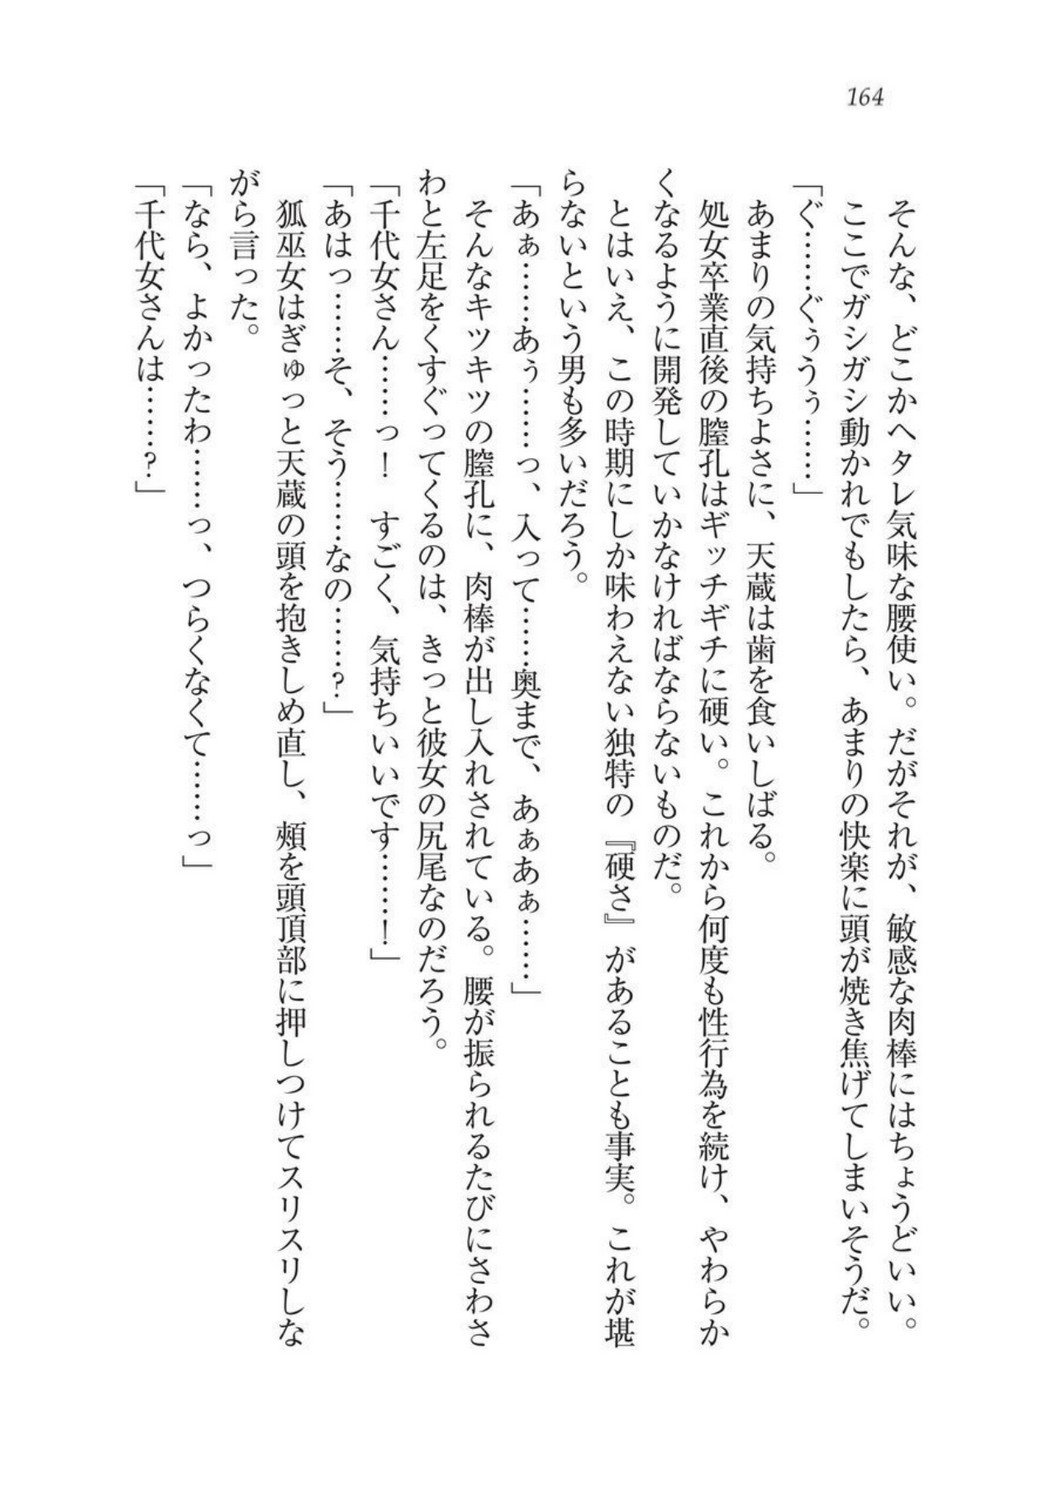 164
そんな、どこかヘタレ気味な腰使い。だがそれが、敏感な肉棒にはちょうどいい。
ここでガシガシ動かれでもしたら、あまりの快楽に頭が焼き焦げてしまいそうだ。
「ぐ……ぐぅうぅ……」
あまりの気持ちよさに、天蔵は歯を食いしばる。
処女卒業直後の膣孔はギッチギチに硬い。これから何度も性行為を続け、やわらか
くなるように開発していかなければならないものだ。
とはいえ、この時期にしか味わえない独特の『硬さ』があることも事実。これが堪
らないという男も多いだろう。
「あぁ……あぅ……っ、入って……奥まで、あぁあぁ……」
そんなキツキツの膣孔に、肉棒が出し入れされている。腰が振られるたびにさわさ
わと左足をくすぐってくるのは、きっと彼女の尻尾なのだろう。
「千代女さん……っ！　すごく、気持ちいいです……！」
「あはっ……そ、そう……なの……？」
狐巫女はぎゅっと天蔵の頭を抱きしめ直し、頬を頭頂部に押しつけてスリスリしな
がら言った。
「なら、よかったわ……っ、つらくなくて……っ」
「千代女さんは……？」